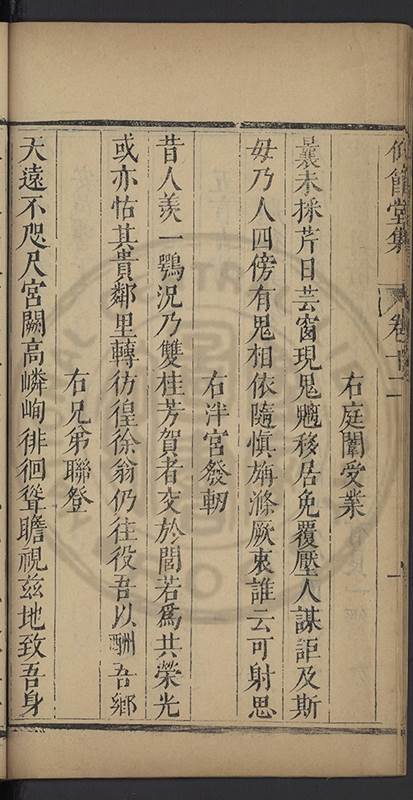 仰節堂集
卷十二
一
右庭闈受業
曩未採芹日芸窗現鬼魑移居免覆壓人謀詎及斯
毋乃人四傍有鬼相依隨慎旃滌厥衷誰云可射思
右泮宮發軔
昔人羨一鶚況乃雙桂芳賀者交於閭若爲共榮光
或亦怙其貴鄰里轉彷徨徐翁仍往役吾以酬吾鄉
右兄弟聯登
天遠不咫尺宮闕高嶙峋徘徊聳瞻視玆地致吾身